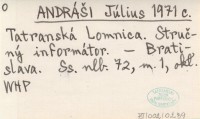 O
ANDRÁŠI Július 1971 c.
Tatranská Lomnica. Struč-
ný informátor. - Brati-
slava. Ss. nlb. 72, m. 1, okl.
WHP